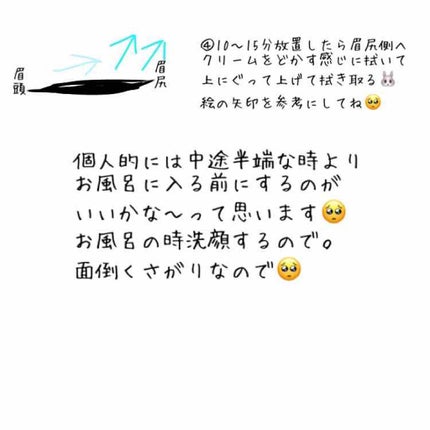 眉頭
眉尻
④10〜15分放置したら眉尻側へ
クリームをどかす感じに拭いて
上にぐって上げて拭き取る🐰
絵の矢印を参考にしてね🥺
個人的には中途半端な時より
お風呂に入る前にするのが
いいかな〜って思います🥺
お風呂の時洗顔するので。
面倒くさがりなので🥺